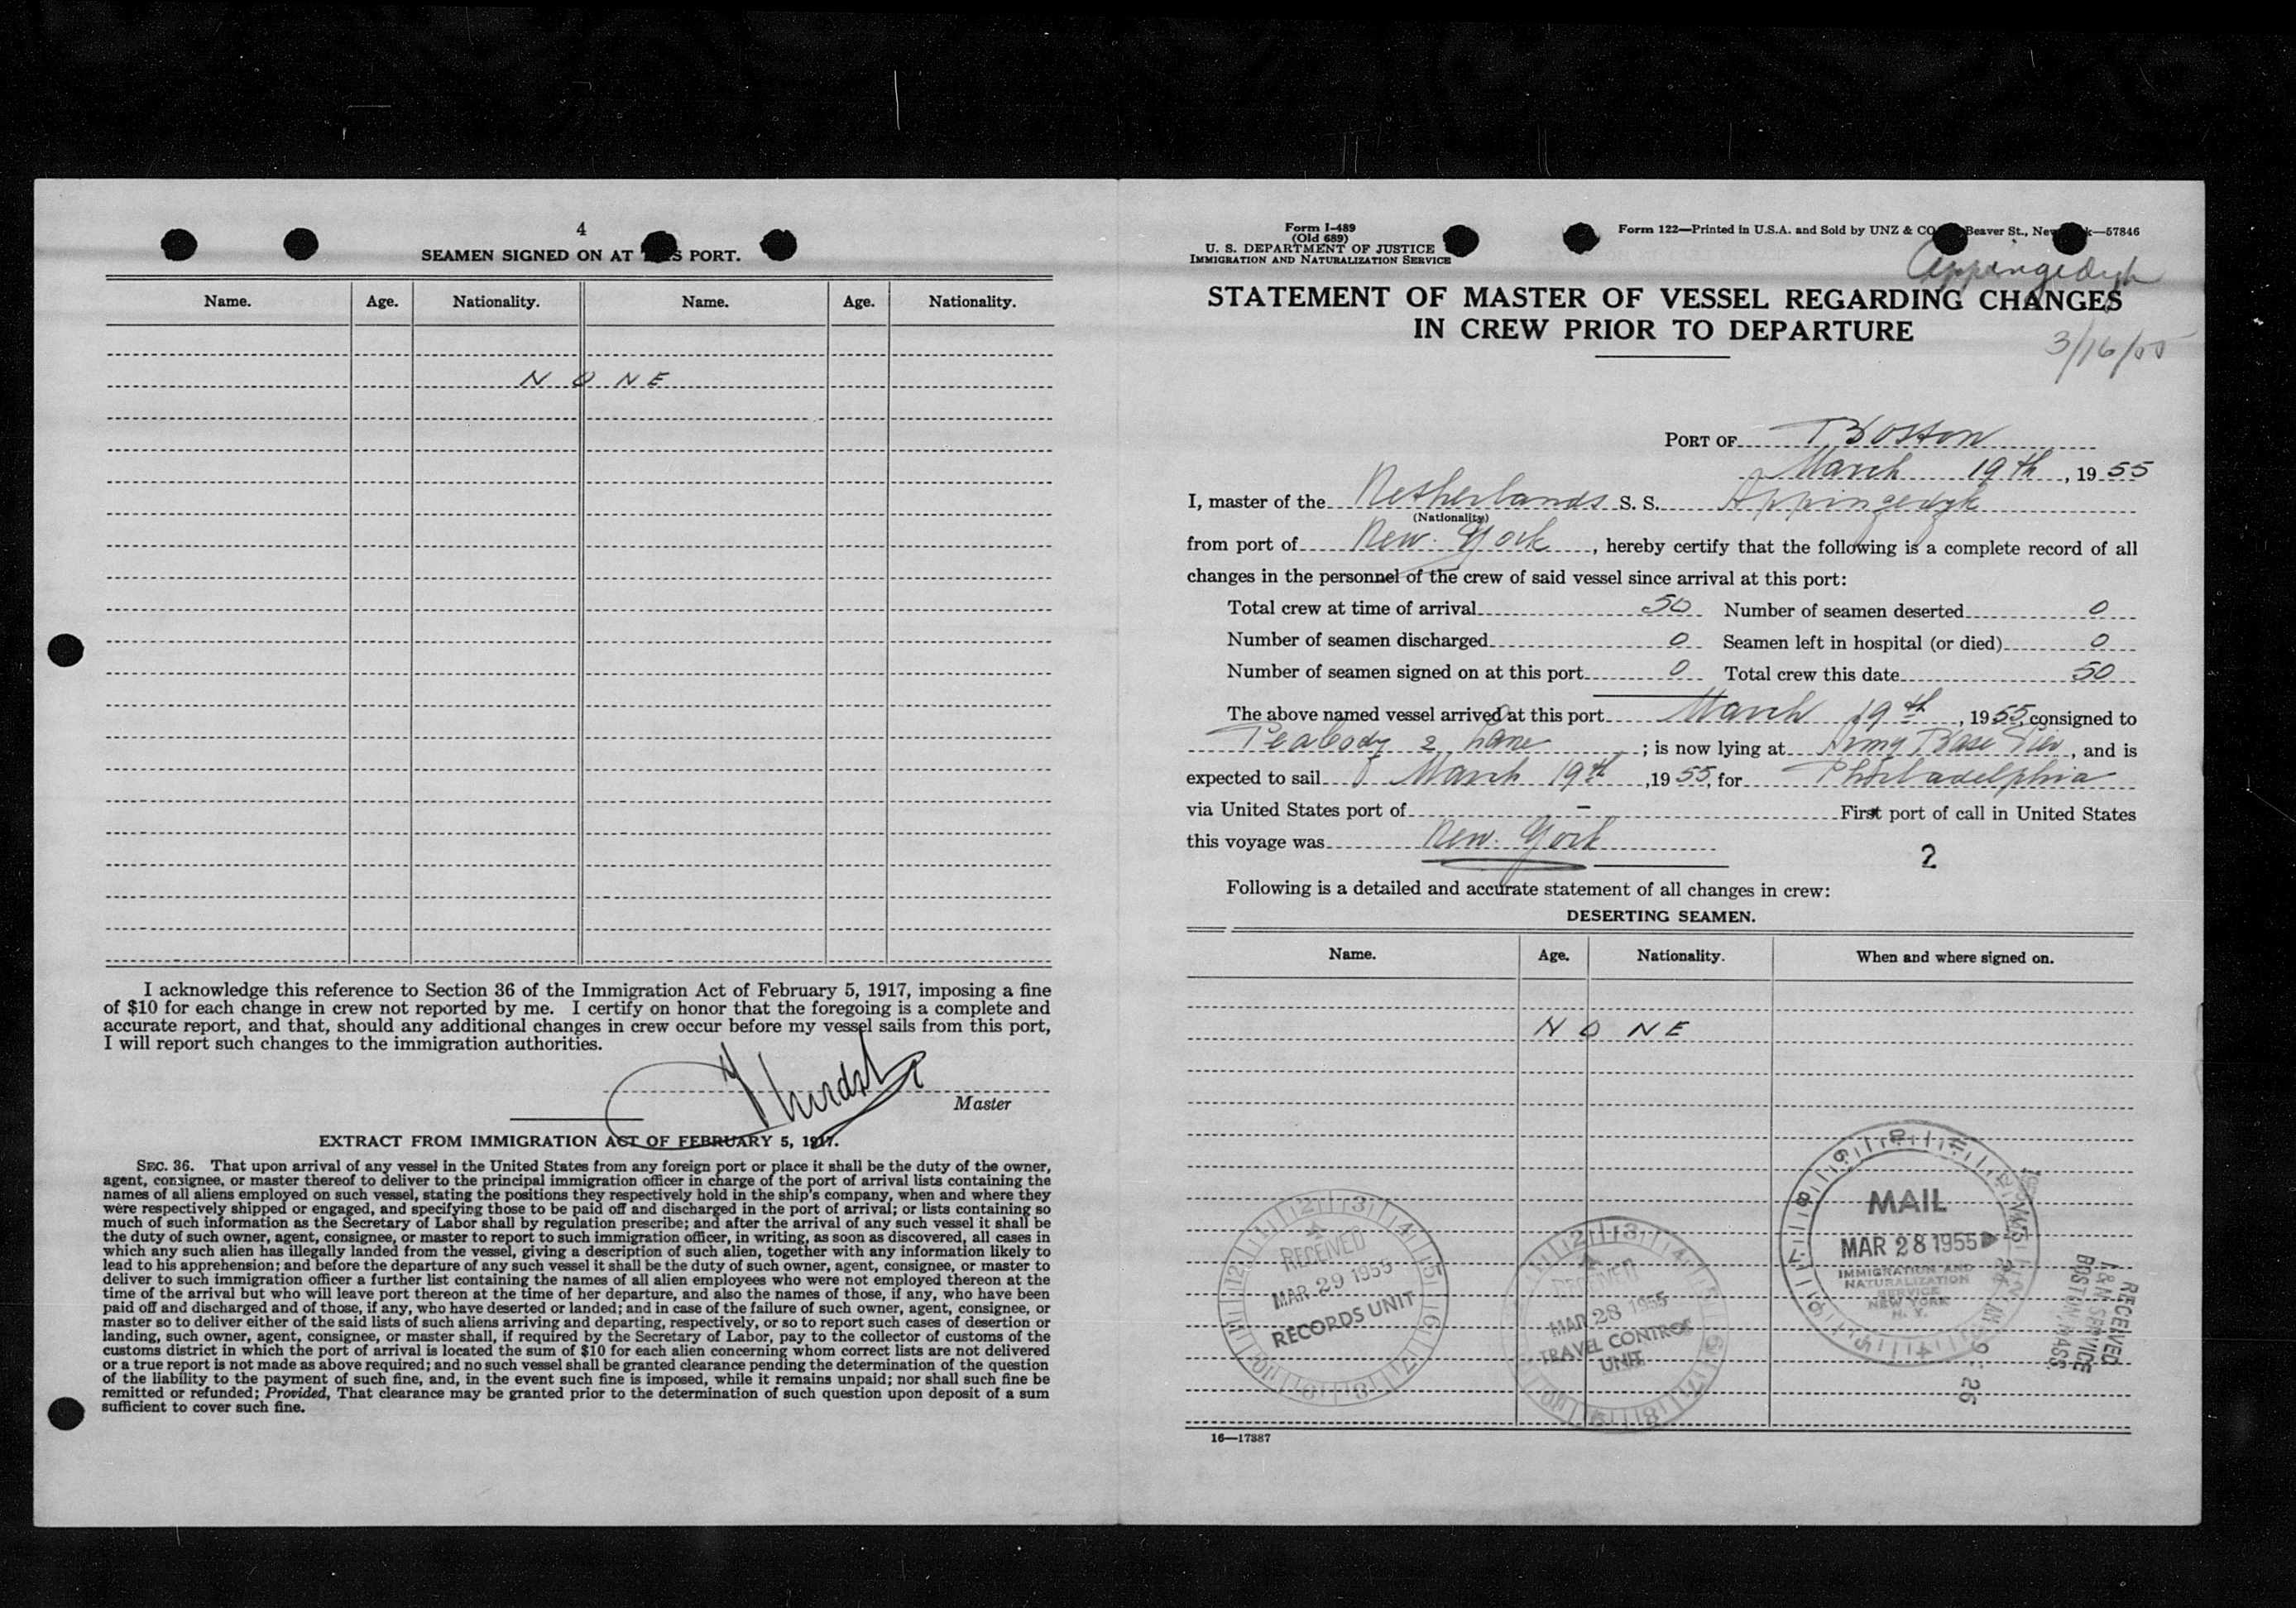 4
SEAMEN SIGNED ON AT PORT.
Name. Age. Nationality. Name. Age. Nationality.
NONE
I acknowledge this reference to Section 36 of the Immigration Act of February 5, 1917, imposing a fine
of $10 for each change in crew not reported by me. I certify on honor that the foregoing is a complete and
accurate report, and that, should any additional changes in crew occur before my vessel sails from this port,
I will report such changes to the immigration authorities.
Master
EXTRACT FROM IMMIGRATION ACT OF FEBRUARY 5, 1917.
SEC. 36. That upon arrival of any vessel in the United States from any foreign port or place it shall be the duty of the owner,
agent, consignee, or master thereof to deliver to the principal immigration officer in charge of the port of arrival lists containing the
names of all aliens employed on such vessel, stating the positions they respectively hold in the ship's company, when and where they
were respectively shipped or engaged, and specifying those to be paid off and discharged in the port of arrival; or lists containing so
much of such information as the Secretary of Labor shall by regulation prescribe; and after the arrival of any such vessel it shall be
the duty of such owner, agent, consignee, or master to report to such immigration officer, in writing, as soon as discovered, all cases in
which any such alien has illegally landed from the vessel, giving a description of such alien, together with any information likely to
lead to his apprehension; and before the departure of any such vessel it shall be the duty of such owner, agent, consignee, or master to
deliver to such immigration officer a further list containing the names of all alien employees who were not employed thereon at the
time of the arrival but who will leave port thereon at the time of her departure, and also the names of those, if any, who have been
paid off and discharged and of those, if any, who have deserted or landed; and in case of the failure of such owner, agent, consignee, or
master so to deliver either of the said lists of such aliens arriving and departing, respectively, or so to report such cases of desertion or
landing, such owner, agent, consignee, or master shall, if required by the Secretary of Labor, pay to the collector of customs of the
customs district in which the port of arrival is located the sum of $10 for each alien concerning whom correct lists are not delivered
or a true report is not made as above required; and no such vessel shall be granted clearance pending the determination of the question
of the liability to the payment of such fine, and, in the event such fine is imposed, while it remains unpaid; nor shall such fine be
remitted or refunded; Provided, That clearance may be granted prior to the determination of such question upon deposit of a sum
sufficient to cover such fine.
Form I-489
(Old 689)
U. S. DEPARTMENT OF JUSTICE
IMMIGRATION AND NATURALIZATION SERVICE
Form 122—Printed in U.S.A. and Sold by UNZ & CO Beaver St., New —57846
Appingedyk
STATEMENT OF MASTER OF VESSEL REGARDING CHANGES
IN CREW PRIOR TO DEPARTURE
3/16/55
PORT OF Boston
March 19th, 1955
I, master of the Netherlands S. S. Appingedyk
(Nationality)
from port of New York, hereby certify that the following is a complete record of all
changes in the personnel of the crew of said vessel since arrival at this port:
Total crew at time of arrival 50 Number of seamen deserted 0
Number of seamen discharged 0 Seamen left in hospital (or died) 0
Number of seamen signed on at this port 0 Total crew this date 50
The above named vessel arrived at this port March 19th, 1955, consigned to
Peabody & Lane; is now lying at Army Base Pier, and is
expected to sail March 19th, 1955, for Philadelphia
via United States port of - First port of call in United States
this voyage was New York
2
Following is a detailed and accurate statement of all changes in crew:
DESERTING SEAMEN.
Name. Age. Nationality. When and where signed on.
NONE
RECEIVED
MAR 29 1955
RECORDS UNIT
RECEIVED
MAR 28 1955
TRAVEL CONTROL
UNIT
MAIL
MAR 28 1955
IMMIGRATION AND
NATURALIZATION
SERVICE
NEW YORK
N. Y.
RECEIVED
I & N SERVICE
BOSTON MASS
16—17387